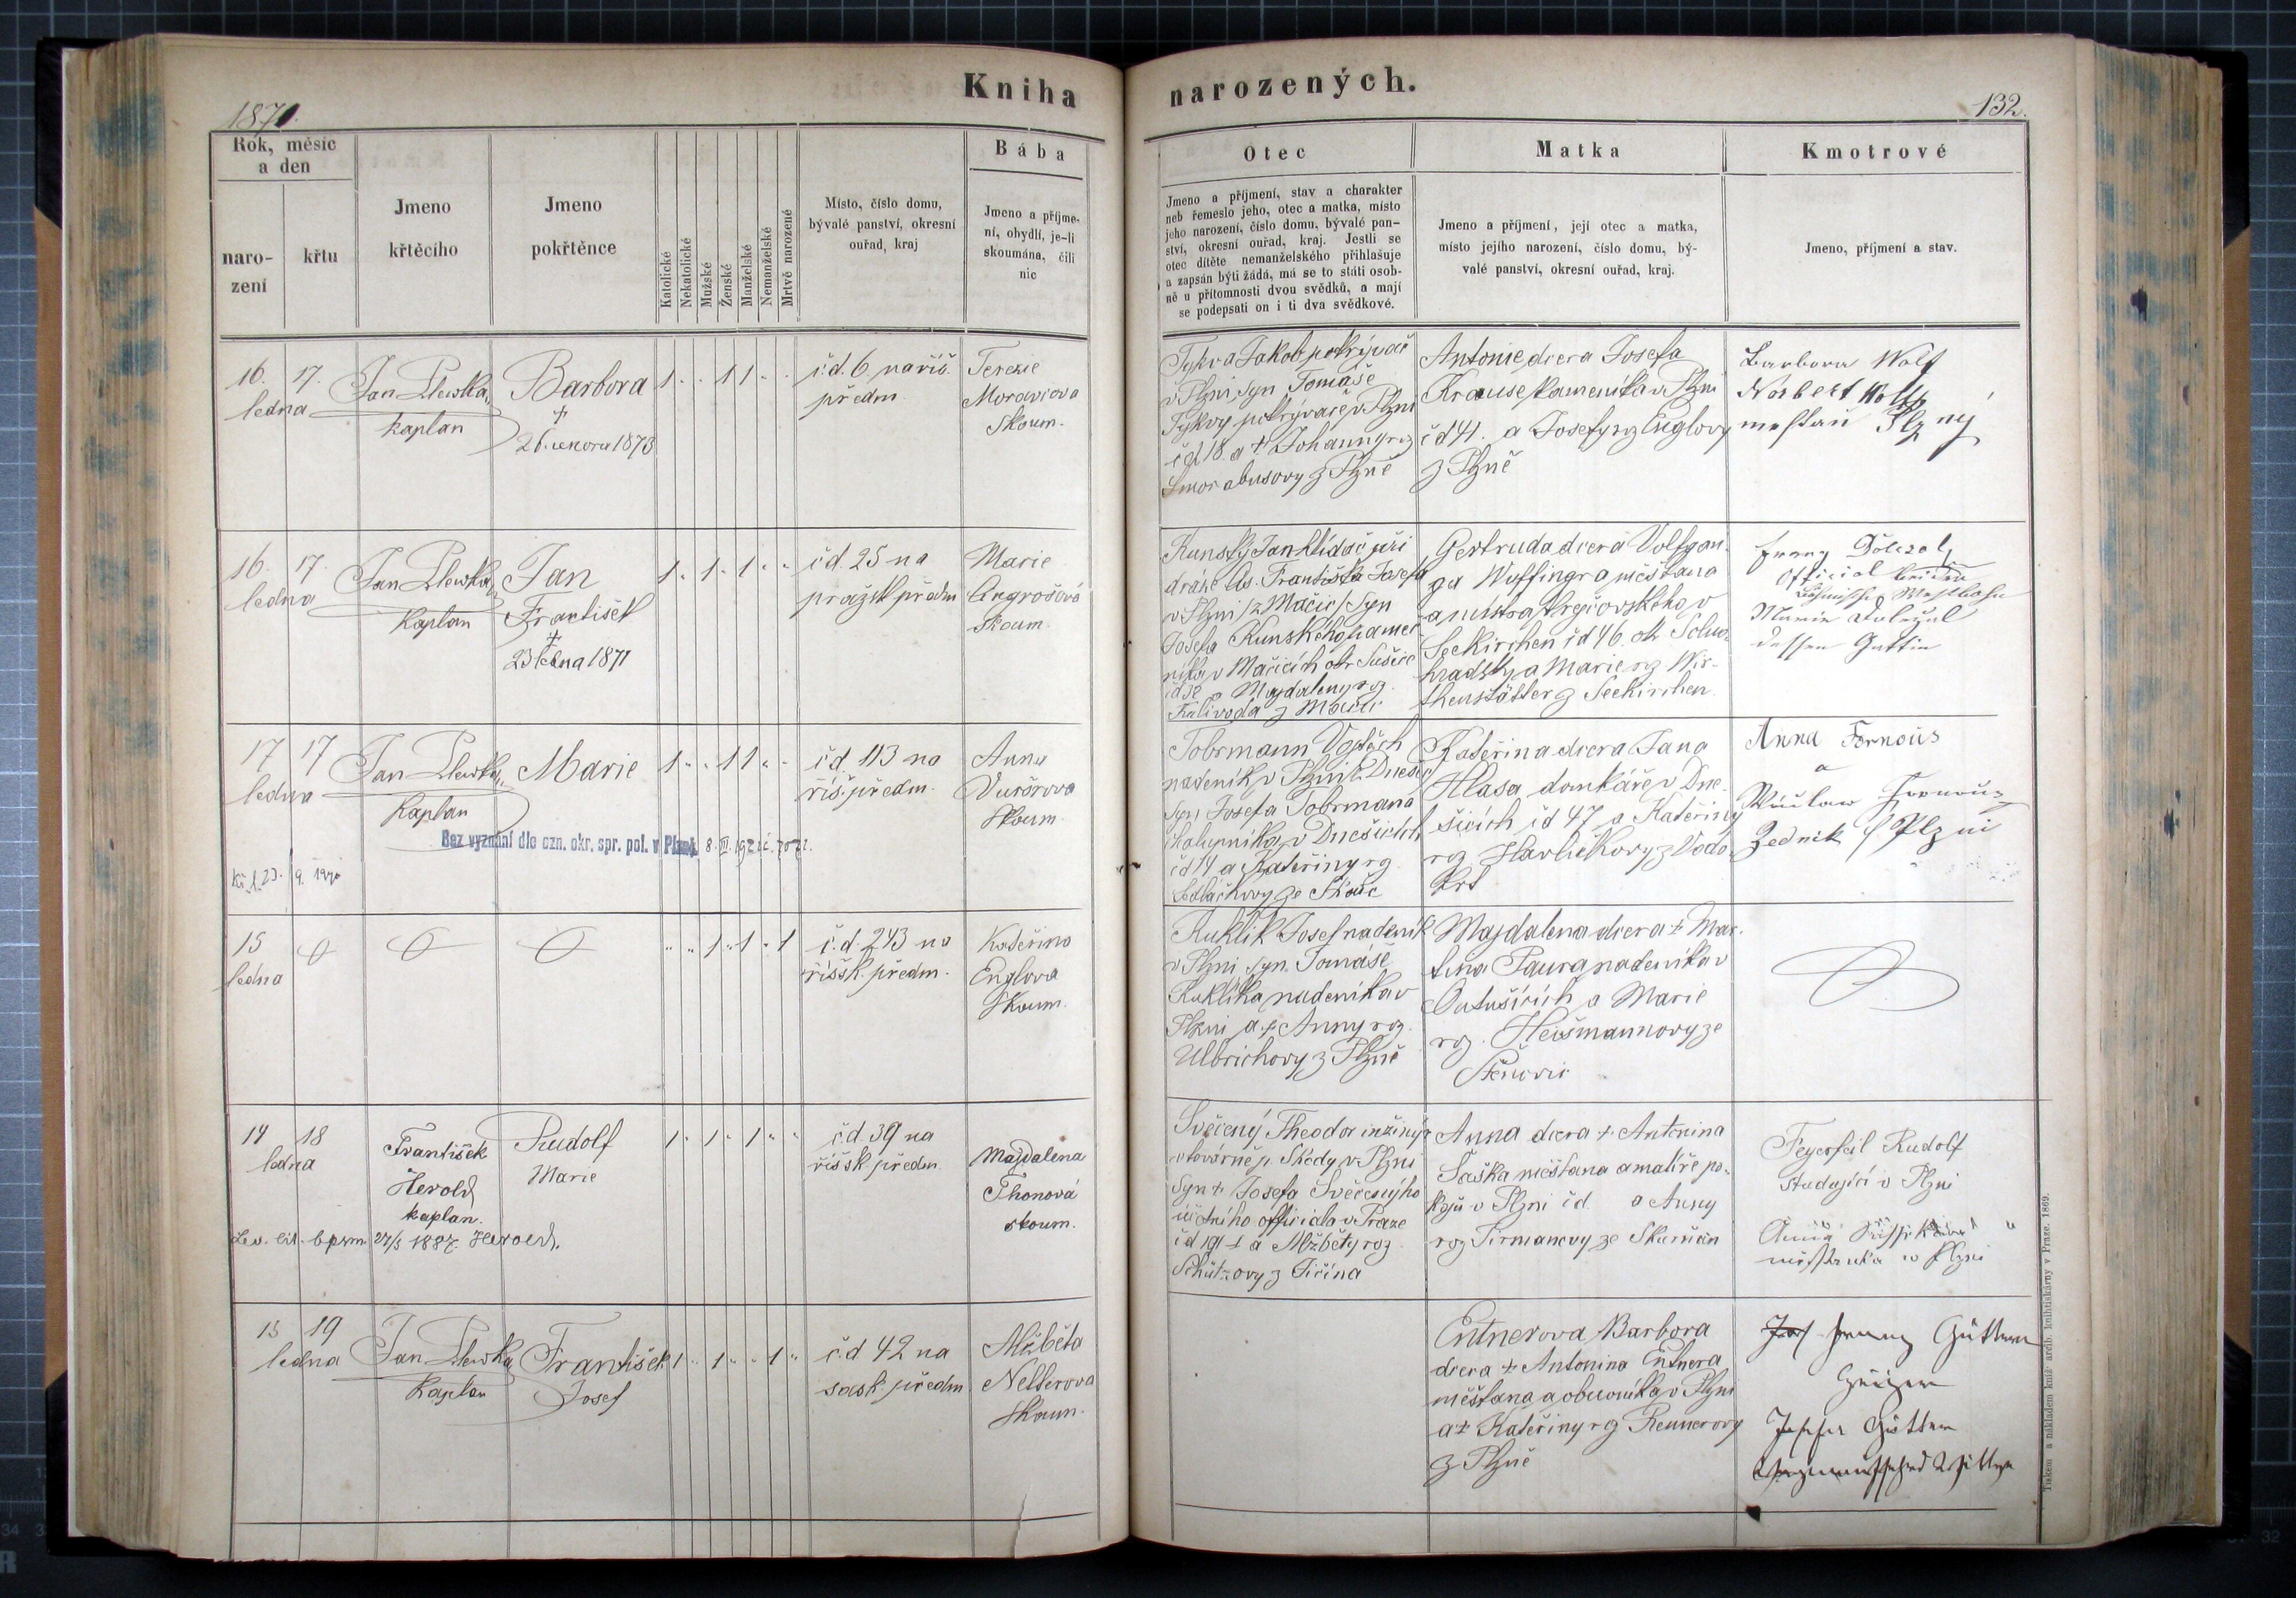 Kniha
narozených.
1871.
132.
Rok, měsíc
a den
naro-
zení
křtu
Jmeno
křtěcího
Jmeno
pokřtěnce
Katolické
Nekatolické
Mužské
Ženské
Manželské
Nemanželské
Mrtvě narozené
Místo, číslo domu,
bývalé panství, okresní
ouřad, kraj
Bába
Jmeno a příjme-
ní, obydlí, je-li
skoumána, čili
nic
Otec
Jmeno a příjmení, stav a charakter
neb řemeslo jeho, otec a matka, místo
jeho narození, číslo domu, bývalé pan-
ství, okresní ouřad, kraj. Jestli se
otec dítěte nemanželského přihlašuje
a zapsán býti žádá, má se to státi osob-
ně u přítomnosti dvou svědků, a mají
se podepsati on i ti dva svědkové.
Matka
Jmeno a příjmení, její otec a matka,
místo jejího narození, číslo domu, bý-
valé panství, okresní ouřad, kraj.
Kmotrové
Jmeno, příjmení a stav.
16. 17.
ledna
Jan Plewka,
kaplan
Barbora
+
26. února 1873
1 " " 1 1 " "
čd. 6 na říš.
předm.
Terezie
Moravcova
Skoum.
Tykva Jakob pokrývač
v Plzni syn Tomáše
Tykvy pokrývače v Plzni
čd 18. a + Johanny roz
z Plzně
Antonie dcera Josefa
Krause kameníka v Plzni
čd 41. a Josefy rz Englovy
z Plzně
Barbora Wolf
Norbert Wolf
mestan Plzny
16. 17.
ledna
Jan Plewka,
Kaplan
Jan
František
+
23 ledna 1871
1 " 1 " 1 " "
čd. 25 na
pražsk předm
Marie
Angrošová
Skoum.
Kunský Jan hlídač při
dráze Cís. Františka Josefa
v Plzni /z Mačic/ Syn
Josefa Kunského
v Mačicích okr Sušice
a Majdaleny roz.
Kalivoda z Mačic
Gertruda dcera Volfgan-
ga Woffingra měštana
a mistra krejčovského v
Seekirchen čd 46. okr Solno-
hradský a Marie rz Wir-
thenstätter z Seekirchen.
Franz Doležal
Official
Böhmischen Westbahn
Marie Doležal
dessen Gattin
17 17
ledna
Jan Plewka,
Kaplan
Marie
1 " " 1 1 " "
čd. 113 na
říš. předm.
Anna
Skoum
Bez vyznání dle ozn. okr. spr. pol. v Plzni
Tobrmann Vojtěch
nadeník v Plzni
Syn Josefa Tobrmana
chalupníka v Dnešicích
čd 14 a Kateřiny rz.
Sedláčkovy ze
Kateřina dcera Jana
Hlasa domkáře v Dne-
šicích čd 47 a Kateřiny
rz Havlíčkovy z Vodo-
krt
Anna Fornous
a
Václaw Fornouz
Zednik f Plzni
15
ledna
" " 1 " 1 " 1
č.d. 243 na
říšsk. předm.
Kateřina
Englova
Skoum.
Kuklík Josef nadeník
v Plzni syn. Tomáše
Kuklíka nadeníka v
Plzni a + Anny rz.
Ulbrichovy z Plzně
Majdalena dcera + Mar-
tina Paura nadeníka v
Outušicích a Marie
rz. Heišmannovy ze
Štěnovic
14 18
ledna
František
Herold
kaplan.
Rudolf
Marie
1 " 1 " 1 " "
č.d. 39 na
říšsk. předm.
Majdalena
Thonová
skoum.
27/5 1887. Herold.
Svěcený Theodor inžinýr
v továrně p. Škody v Plzni
Syn + Josefa Svěceného
účetního officiala v Praze
čd 191-I a Alžběty roz
Schützovy z Jičína
Anna dcera + Antonina
Šaška měštana a malíře po-
kojů v Plzni čd a Anny
roz Pirmanovy ze Skurňan
Feyerfeil Rudolf
studující v Plzni
Anna
měštanka v Plzni
15 19
ledna
Jan Plewka,
Kaplan
František
Josef
1 " 1 " " 1 "
č.d 42 na
sask předm
Alžběta
Nelberova
Skoum.
Entnerova Barbora
dcera + Antonina Entnera
měštana a obuvníka v Plzni
a + Kateřiny rz Rennerovy
z Plzně
Franz Güttner
Josefa Güttner
Tiskem a nákladem kníž. arcib. knihtiskárny v Praze. 1869.